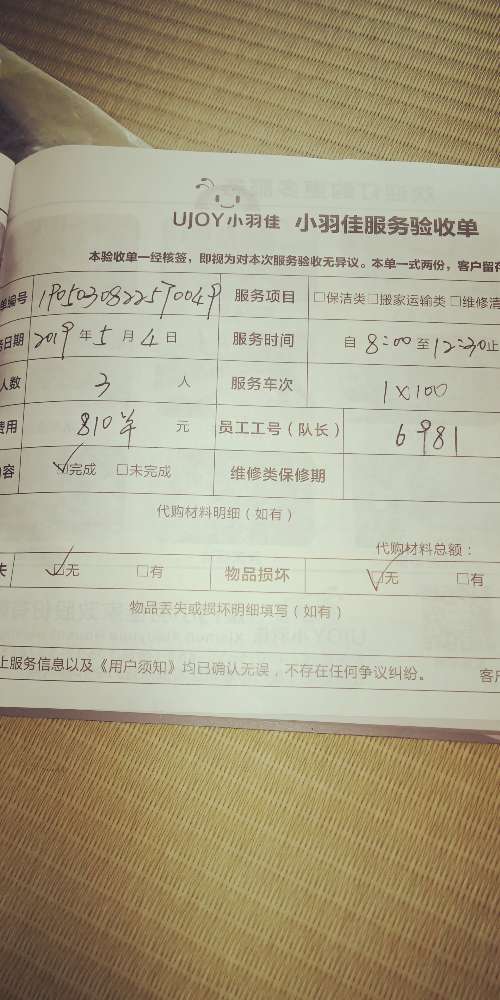 UJOY小羽佳 小羽佳服务验收单
本验收单一经核签，即视为对本次服务验收无异议。本单一式两份，客户留存
单编号 190503082257004 9 服务项目 □保洁类□搬家运输类□维修清
务日期 2019年5月4日 服务时间 自8:00至12:30止
人数 3 人 服务车次 1×100
费用 810 元 员工工号（队长） 6981
内容 ☑完成 □未完成 维修类保修期
代购材料明细（如有）
代购材料总额：
失 ☑无 □有 物品损坏 ☑无 □有
物品丢失或损坏明细填写（如有）
上服务信息以及《用户须知》均已确认无误，不存在任何争议纠纷。 客户